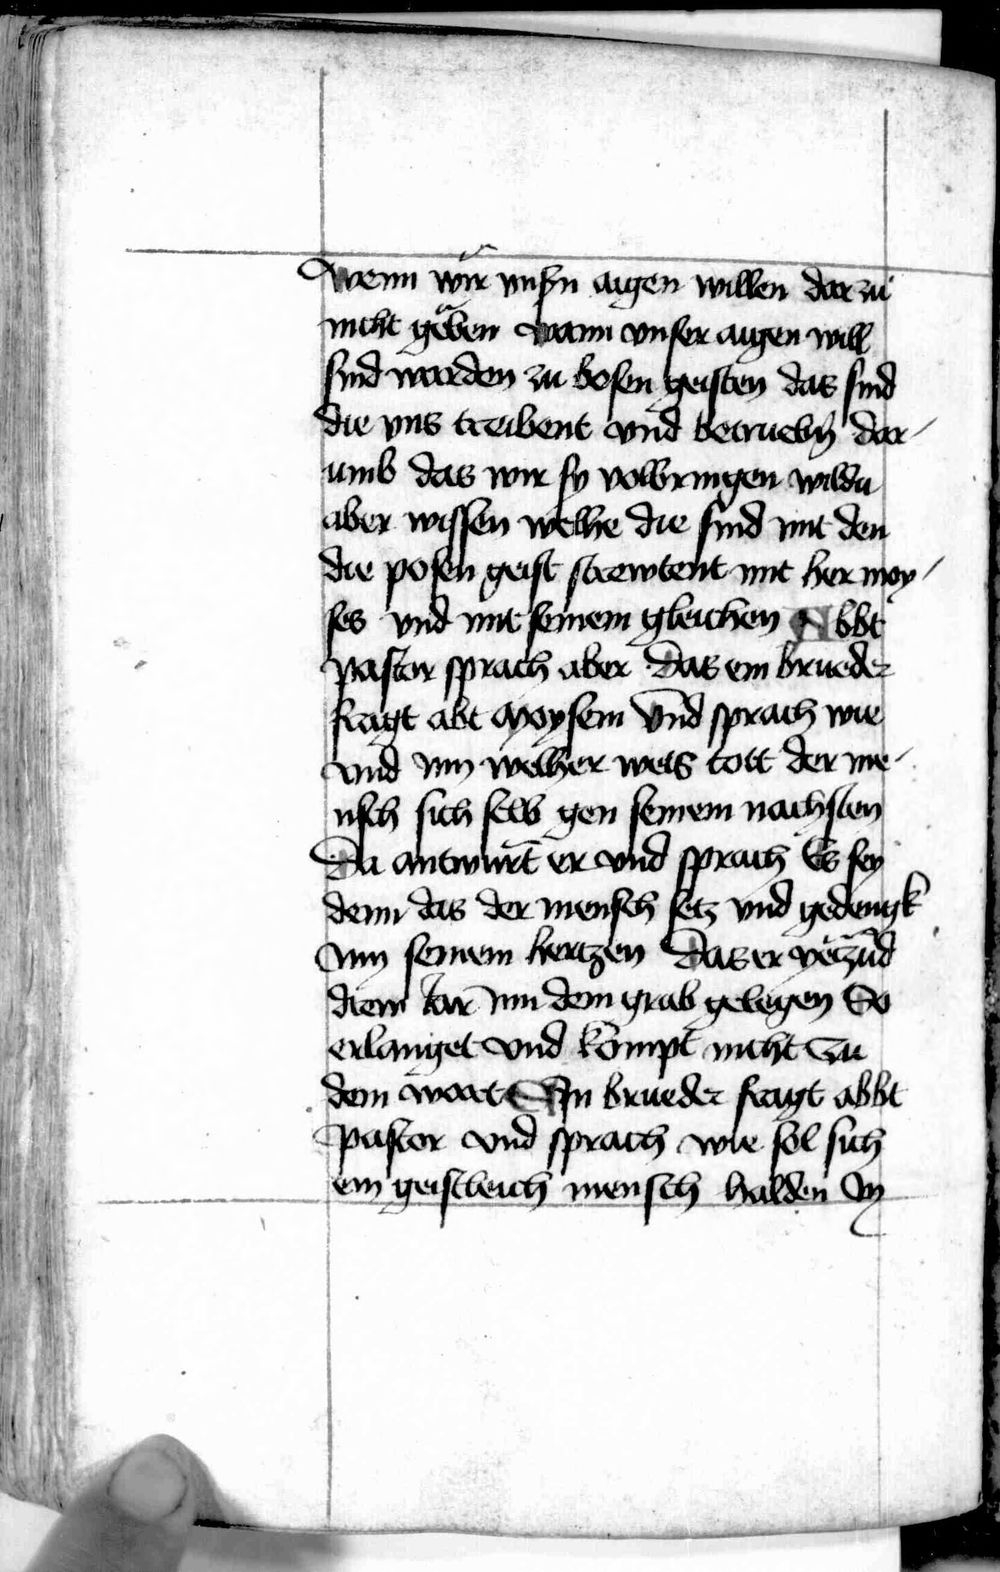 wenn wir unsern aigen willen dar zu
nicht geben wann unser aigen will
sind worden zu bosen geisten das sind
die uns treibent und betruebn dar-
umb das wir sy volbringen wildu
aber wissen welhe die sind mit den
die posen geist strewtent mit her moy-
ses und mit seinem gleichen Abbt
pastor sprach aber Das ein brueder
fragt abt Moysem Und sprach wie
und inn welher weis tott der me-
nsch sich selb gen seinem nachsten
Da antwurt er und sprach Es sey
denn das der mensch setz und gedengk
inn seinem hertzen Das er yetzund
drew Iar inn dem grab gelegen So
erlanget und kompt nicht zu
dem wort Ein brueder fragt abbt
pastor und sprach wie sol sich
ein geistleich mensch halden In